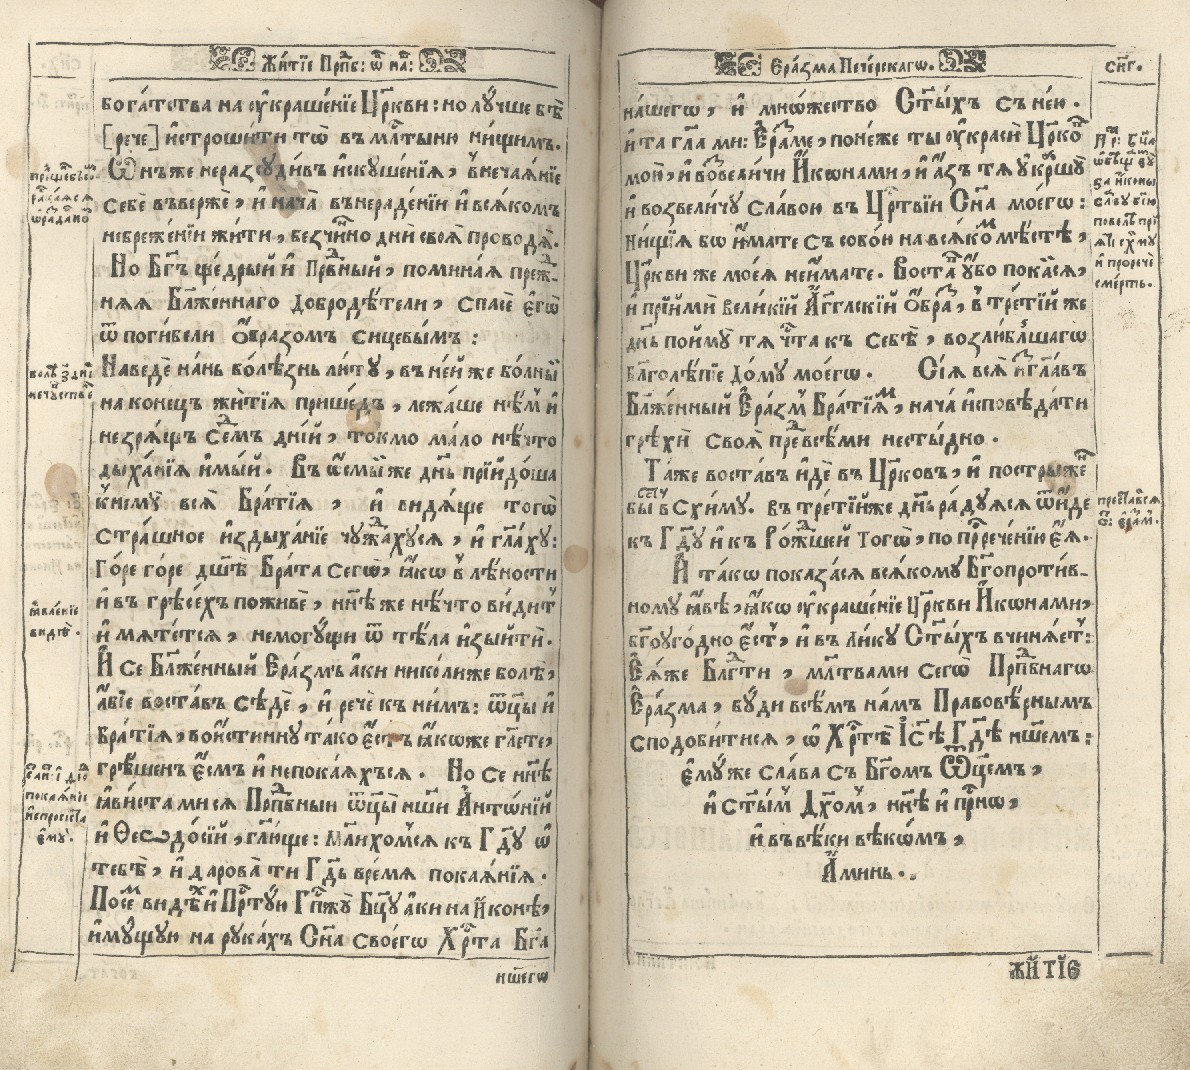 Жи́тїе Прпⷣб: ѿ на́:
бога́тства на ѹ҆краше́нїе Цр҃кви: но лѹ́чше бѣ̀
[рече] и҆строши́ти то̀ въ млⷭ҇тыню ни́щимъ.
Ѡ҆нъ же неразсѹди́въ и҆скѹше́нїѧ, в̾неча́ѧнїе
себѐ въве́рже, и҆ нача̀ в̾нераде́нїи и҆ всѧ́комъ
небреже́нїи жи́ти, безчи́нно дни̑ своѧ̑ проводѧ̀.
Но Бг҃ъ ще́дрый и҆ Првⷣный, помина́ѧ преж-
нѧѧ Бл҃же́ннаго доброде́тели, спасѐ є҆го̀
ѿ поги́бели ѡ҆́бразомъ сицевы́мъ:
Наведѐ на́нь боле́знь лю́тѹ, въ не́й же бо́лный
на коне́цъ житїѧ̀ прише́дъ, лежа́ше нѣ́мъ и҆
незрѧ́щъ се́дмъ дні́й, то́кмо ма́ло нѣ́что
дыха́нїѧ и҆мы́й. Въ ѡ҆смы́й же дн҃ь прїидо́ша
к̾немѹ̀ всѧ̀ Бра́тїѧ, и҆ ви́дѧще того̀
стра́шное и҆здыха́нїе чѹжда́хѹсѧ, и҆ гл҃а́хѹ:
Го́ре го́ре дш҃ѣ̀ Бра́та сегѡ̀, ꙗ҆́кѡ в̾ лѣ́ности
и҆ въ грѣсе́хъ поживѐ, нн҃ѣ же нѣ́что ви́дитъ
и҆ мѧте́тсѧ, немогѹ́щи ѿ тѣ́ла и҆зы́йти.
И҆ се Бл҃же́нный Є҆ра́змъ а҆́ки николи́же болѣ̀,
а҆́бїе воста́въ сѣ́де, и҆ речѐ к̾ ни́мъ: ѿцы̀ и҆
Бра́тїѧ, вои́стиннѹ та́ко є҆́сть ꙗ҆́коже гл҃ете,
грѣ́шенъ є҆́смъ и҆ непока́ѧхъсѧ. Но се нн҃ѣ
ꙗ҆ви́стамисѧ Прпⷣбныи ѿцы̀ нши А҆нтѡ́нїй
и҆ Ѳеѡдо́сїй, гл҃юще: мл҃ихо́мсѧ къ Гдⷭ҇ѹ ѡ҆
тебѣ̀, и҆ дарова̀ ти Гдⷭ҇ь вре́мѧ покаѧ́нїѧ.
По се́мъ ви́дѣхъ и҆ Прⷭ҇тѹю Гпⷭ҇жѹ̀ Бц҃ѹ а҆́ки на И҆ко́нѣ,
и҆мѹ́щѹю на рѹка́хъ Сн҃а своегѡ̀ Хрⷭ҇та̀ Бг҃а
ншегѡ
ꙗ҆вле́нїе
видѣ.
покаѧ́нїе
є҆мѹ̀.
Є҆ра́зма Пече́рскагѡ.
сн҃г.
на́шегѡ, и҆ мно́жество Ст҃ы́хъ съ не́ю.
и҆ та гл҃а ми: Є҆ра́зме, поне́же ты ѹ҆краси̑ Цр҃ковь
мою̀, и҆ возвели́чи И҆кѡ́нами, и҆ а҆́зъ тѧ ѹ҆крашѹ̀
и҆ возвели́чѹ сла́вою въ Црⷭ҇твїи Сн҃а моегѡ̀:
ни́щїѧ бѡ и҆́мате съ собо́ю на всѧ́комъ мѣ́стѣ,
Цр҃кви же моеѧ̀ неи́мате. Воста́въ ѹ҆́бо пока́йсѧ,
и҆ прїймѝ вели́кїй А҆́гг҃лскїй ѡ҆́бразъ, в̾ тре́тїй же
дн҃ь поймѹ̀ тѧ чⷭ҇та къ себѣ̀, возлю́бльшагѡ
благолѣ́пїе до́мѹ моегѡ̀. Сїѧ̀ всѧ̀ и҆згл҃авъ
Бл҃же́нный Є҆ра́змъ Бра́тїѧмъ, нача̀ и҆сповѣ́дати
грѣхѝ своѧ̀ пред̾ всѣ́ми несты́дно.
Та́же воста́въ и҆́де въ Цр҃ковъ, и҆ постри́женъ
бы́сть в̾ Схи́мѹ. в̾ тре́тїйже дн҃ь ра́дѹѧсѧ ѿи́де
къ Гдⷭ҇ѹ и҆ къ Ро́ждшей того̀, по пррече́нїю є҆ѧ̀.
И҆ та́кѡ показа́сѧ всѧ́комѹ Бг҃опроти́в-
номѹ ꙗ҆́вѣ, ꙗ҆́кѡ ѹ҆краше́нїе Цр҃кви И҆кѡ́нами,
бг҃оѹго́дно є҆́сть, и҆ въ ли́кѹ Ст҃ы́хъ в̾чинѧ́етъ:
Є҆ѧ́же Блгⷣти, мл҃твами сегѡ̀ Прпⷣбнагѡ
Є҆ра́зма, бѹ́ди всѣ́мъ на́мъ Правовѣ́рнымъ
сподоби́тисѧ, ѡ҆ Хрⷭ҇тѣ̀ І҆с҃ѣ Гдⷭ҇ѣ на́шемъ:
є҆мѹ́же сла́ва съ Бг҃омъ Ѿц҃емъ,
и҆ ст҃ы́мъ Дх҃омъ, нн҃ѣ и҆ при́снѡ,
и҆ въ вѣ́ки вѣкѡ́мъ,
А҆ми́нь.
и҆ прорече
сме́рть.
преста́висѧ
Жи́тїе